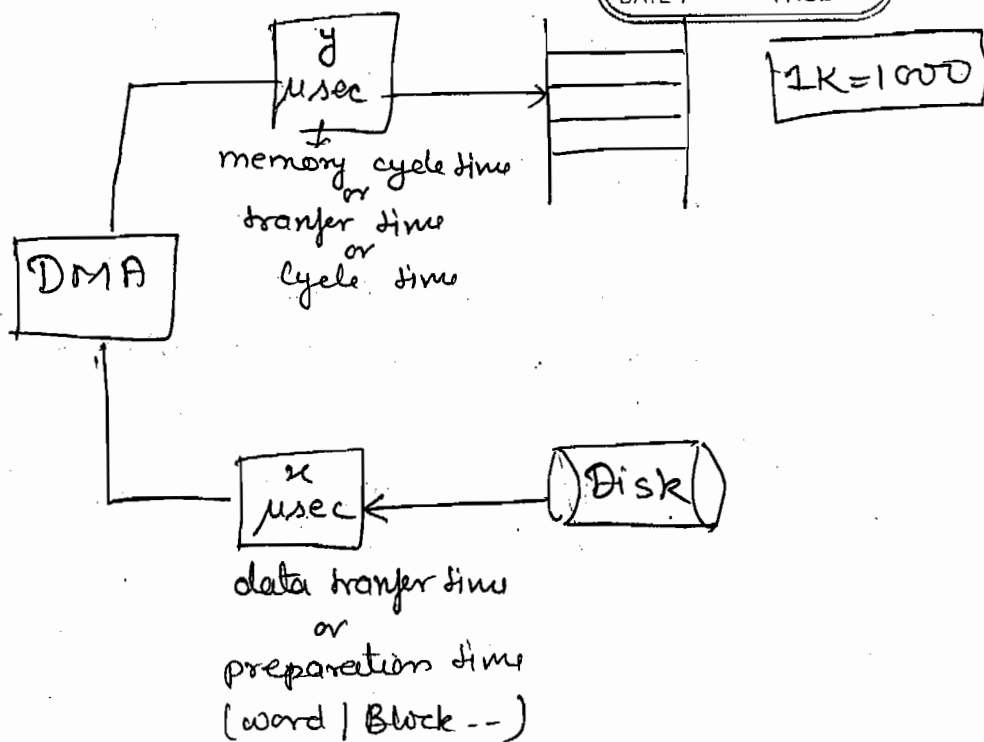 DATE / PAGE
y
μsec
1K=1000
memory cycle time
or
tranfer time
or
Cycle time
DMA
x
μsec
Disk
data tranfer time
or
preparation time
(word | Block --)